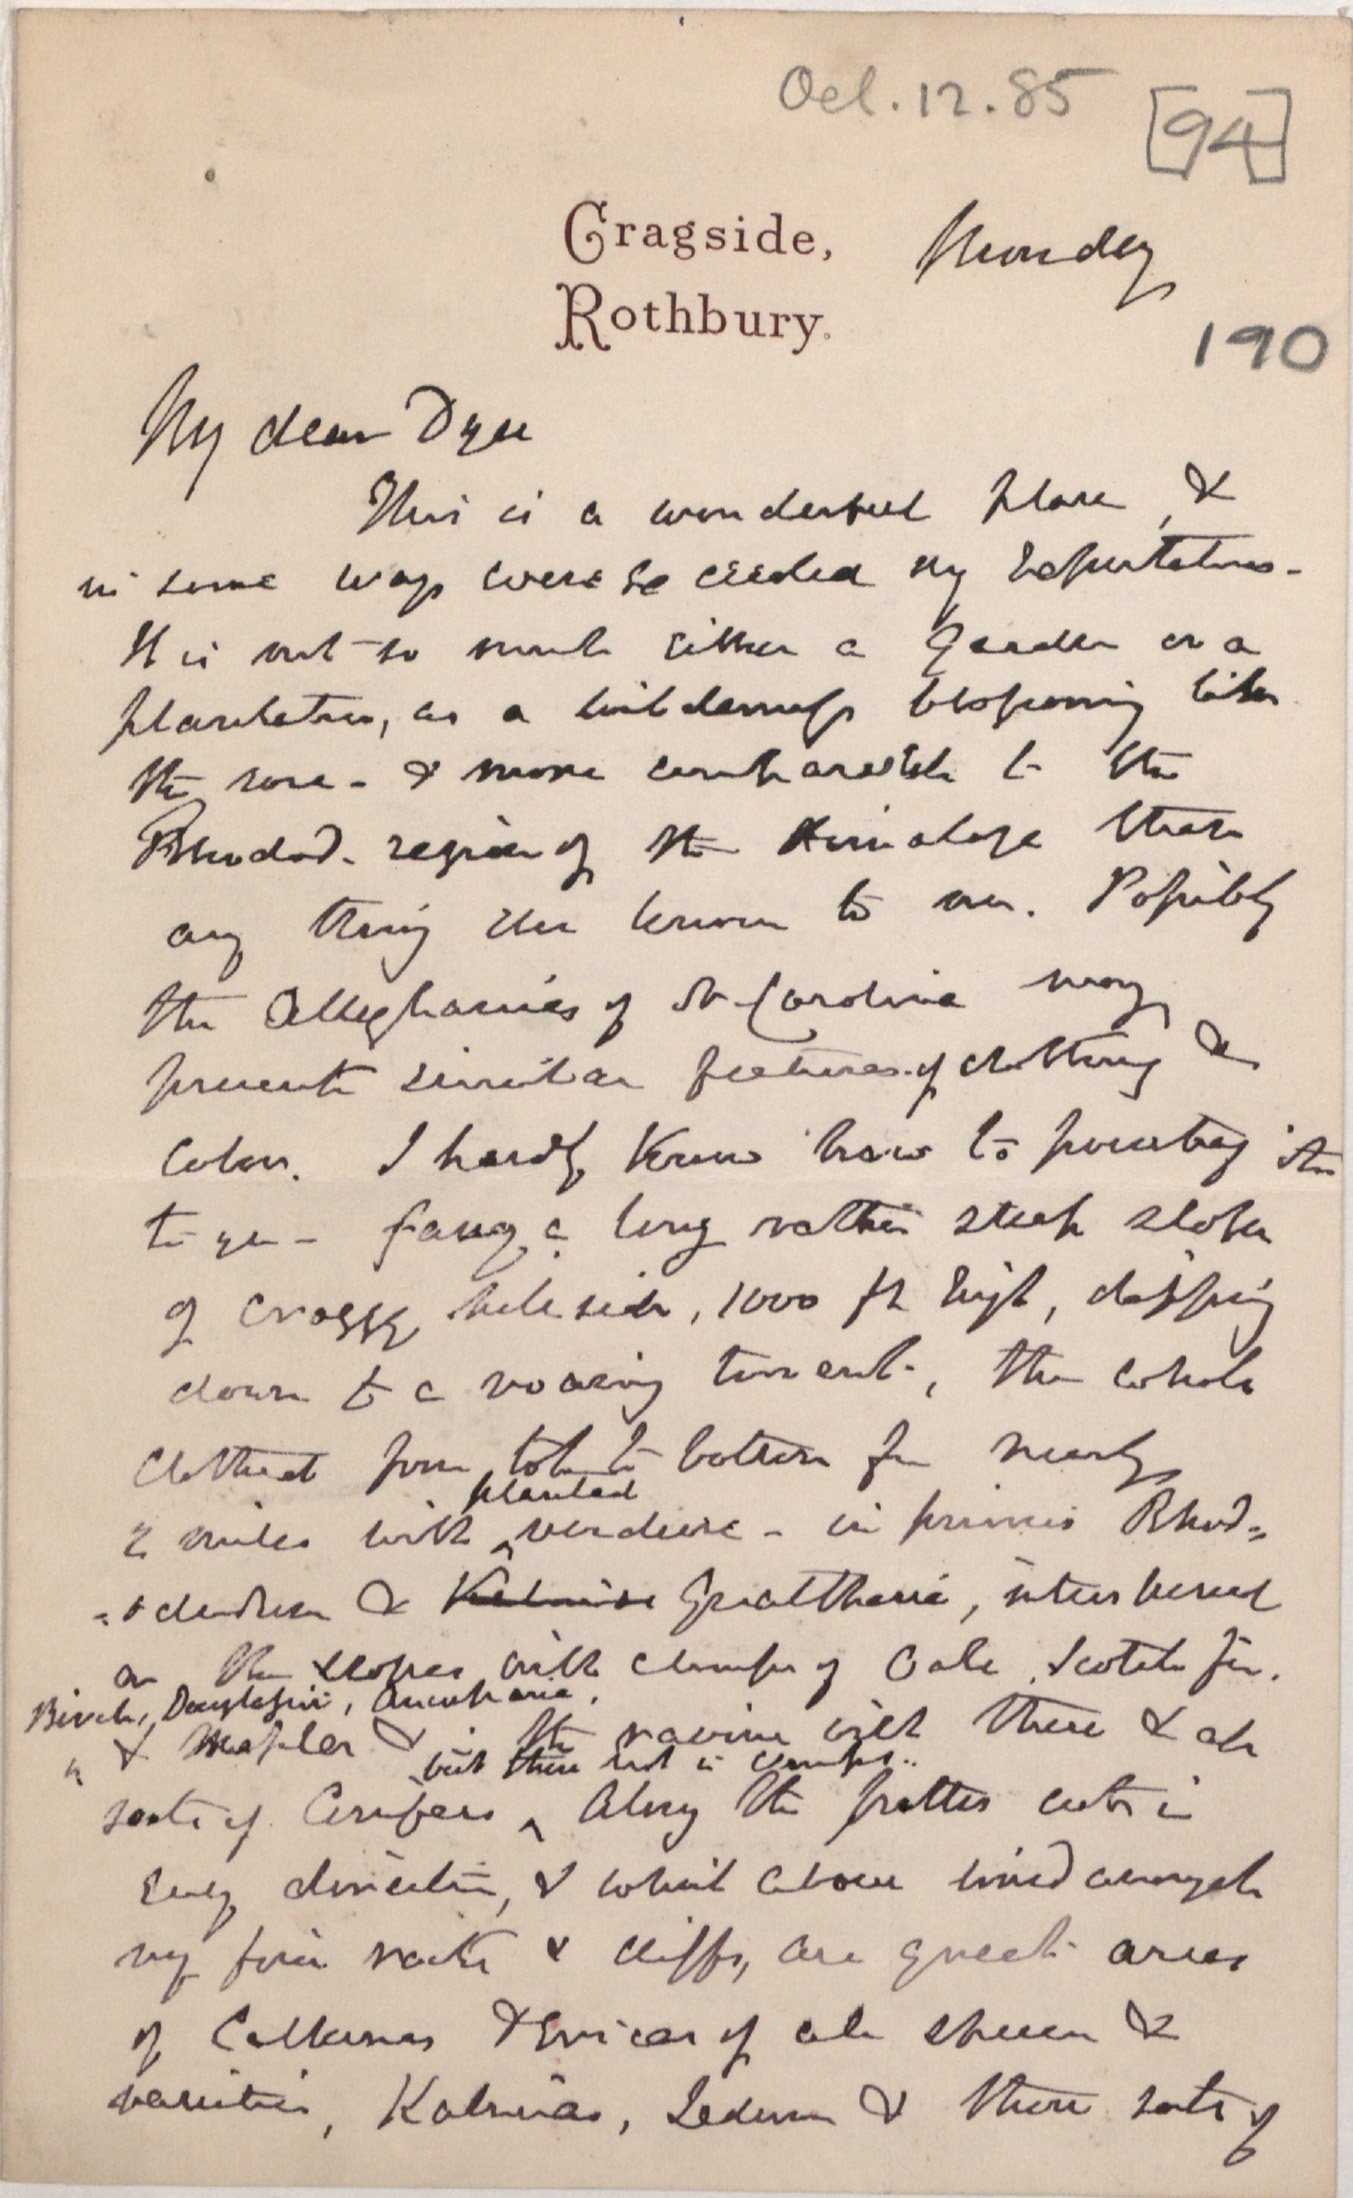 Oct. 12. 85
[94]
Cragside, Monday
Rothbury.
190
My dear Dyer
This is a wonderful place, &
in some ways exceeded my Expectations.
It is not so much either a garden or a
plantation, as a wilderness blossoming like
the rose - & more comparable to the
Rhodod. region of the Himalaya than
any thing else known to me. Possibly
the Alleghanies of N. Carolina may
present similar features of clothing &
color. I hardly know how to pourtray it
to you - fancy a long rather steep slope
of craggy hill side, 1000 ft high, dipping
down to a roaring torrent, the whole
clothed from top to bottom for nearly
planted
2 miles with ^ verdure - in primis Rhod=
=odendron & Kalmia Gualtheria, interspersed
on the slopes with clumps of Oak, Scotch fir,
Birch, Douglas fir, Araucaria,
& Maples & in the ravine with these & all
but these not in clumps.
sorts of Conifers ^ Along the paths cut in
every direction, & which above wind amongst
my fine rocks & cliffs, are great areas
of Callunas & Ericas of all species &
varieties, Kalmias, Ledum & these sorts of